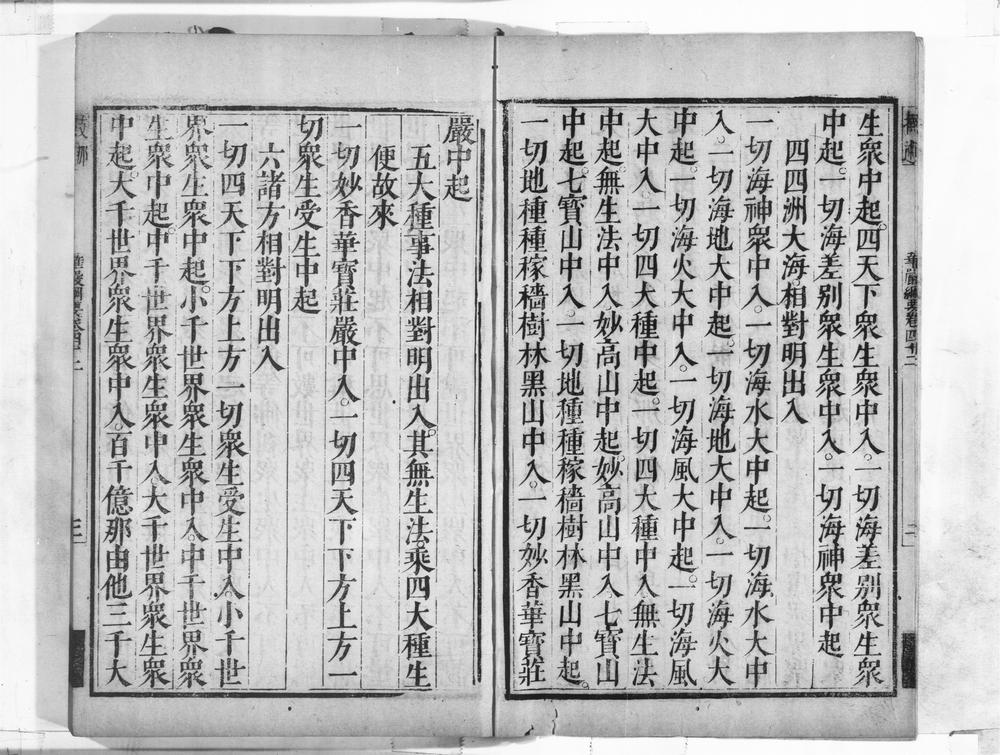 生衆中起。四天下衆生衆中入。一切海差别衆生衆
中起。一切海差别衆生衆中入。一切海神衆中起
四四洲大海。相對明出入
一切海神衆中入。一切海水大中起。一切海水大中
入。一切海地大中起。一切海地大中入。一切海火大
中起。一切海火大中入。一切海風大中起。一切海風
大中入。一切四大種中起。一切四大種中入。無生法
中起。無生法中入。妙高山中起。妙高山中入。七寶山
中起。七寶山中入。一切地種種稼穡樹林黑山中起。
一切地種種稼穡樹林黑山中入。一切妙香華寶莊
嚴中起
五大種事法相對明出入。其無生法乘四大種生
便故來
一切妙香華寶莊嚴中入。一切四天下下方上方一
切衆生受生中起
六諸方相對明出入
一切四天下下方上方一切衆生受生中入。小千世
界衆生衆中起。小千世界衆生衆中入。中千世界衆
生衆中起。中千世界衆生衆中入。大千世界衆生衆
中起。大千世界衆生衆中入。百千億那由他三千大